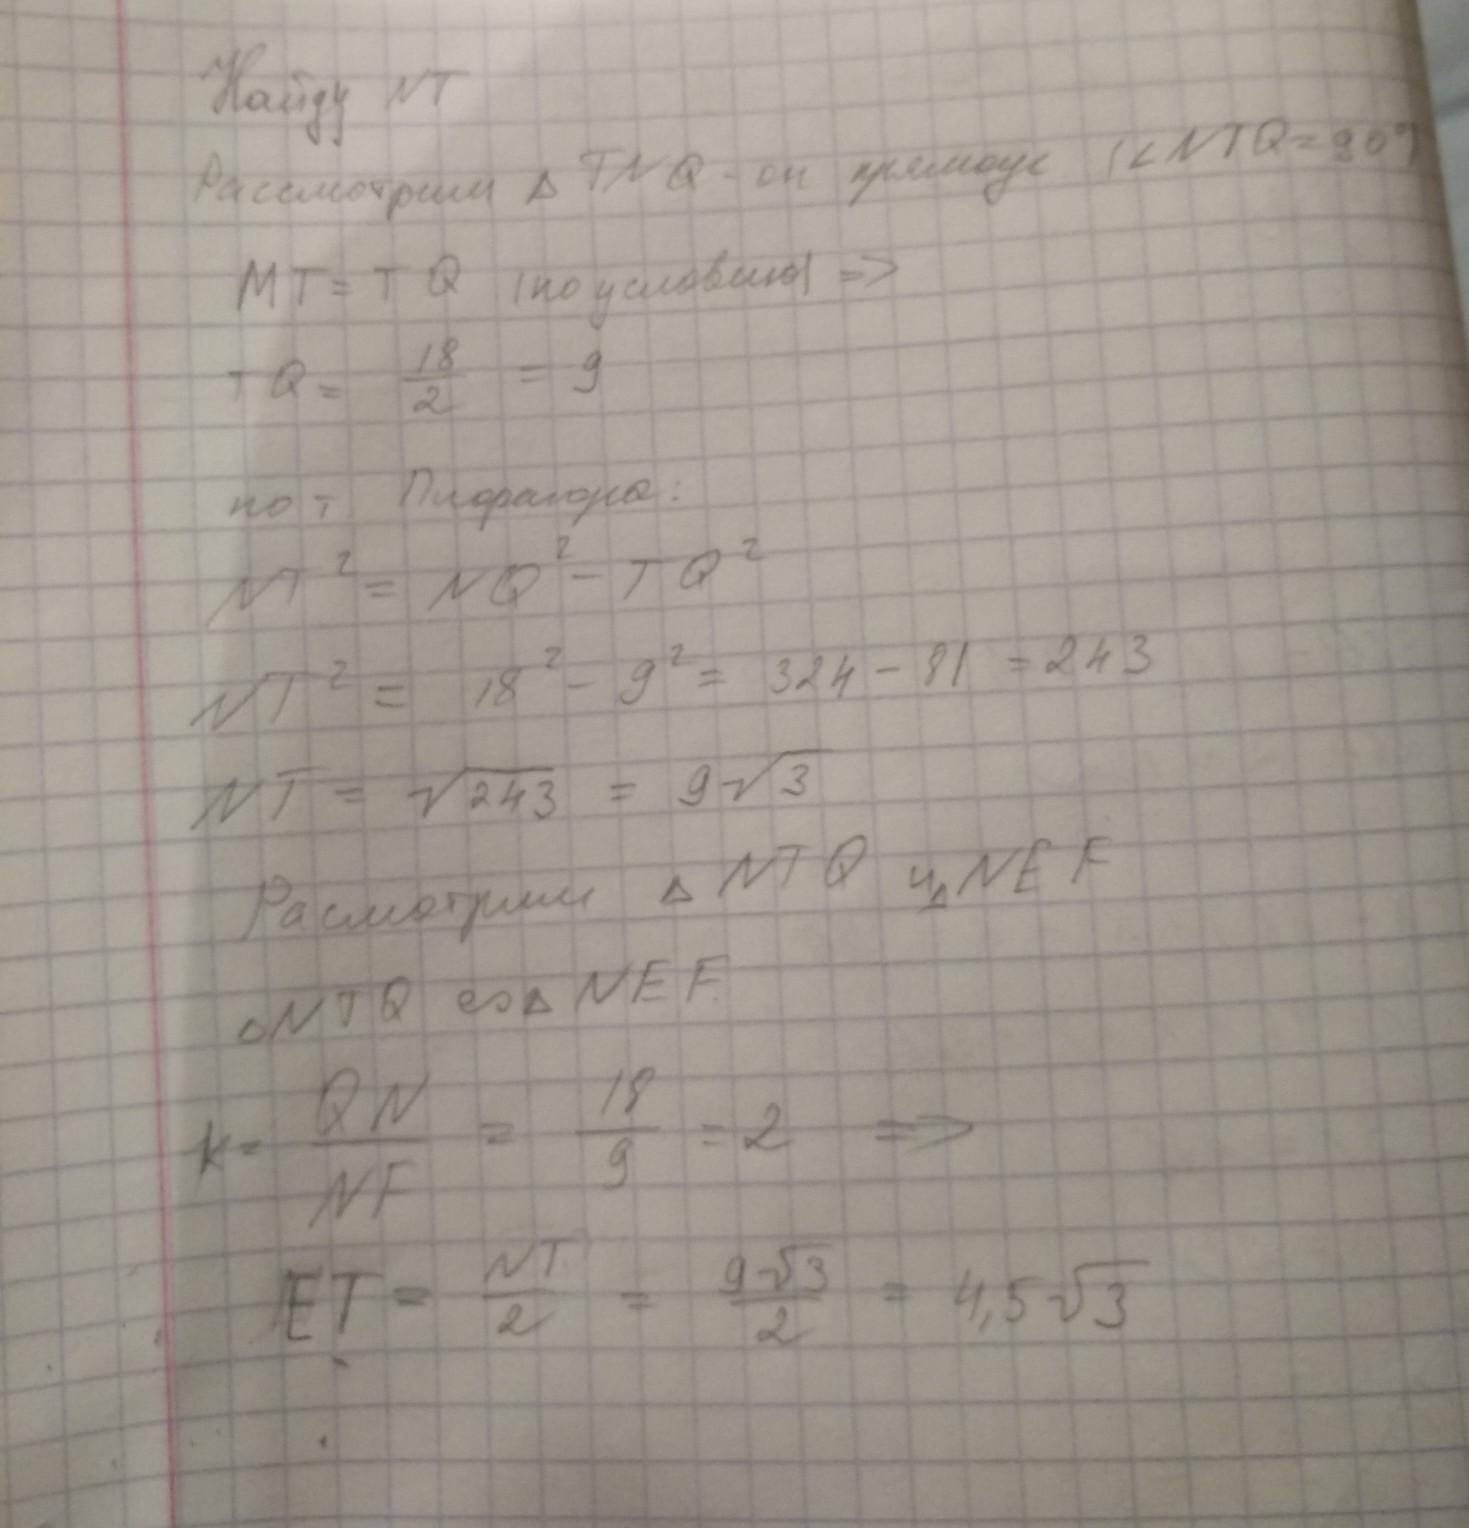 Найду NT
Рассмотрим △ TNQ - он прямоуг (∠NTQ=90°)
MT = TQ (по условию) =>
TQ = 18/2 = 9
по т Пифагора:
NT² = NQ² - TQ²
NT² = 18² - 9² = 324 - 81 = 243
NT = √243 = 9√3
Расмотрим △ NTQ и △ NEF
△NTQ ∾ △NEF
k = QN/NF = 18/9 = 2 =>
ET = NT/2 = 9√3/2 = 4,5√3